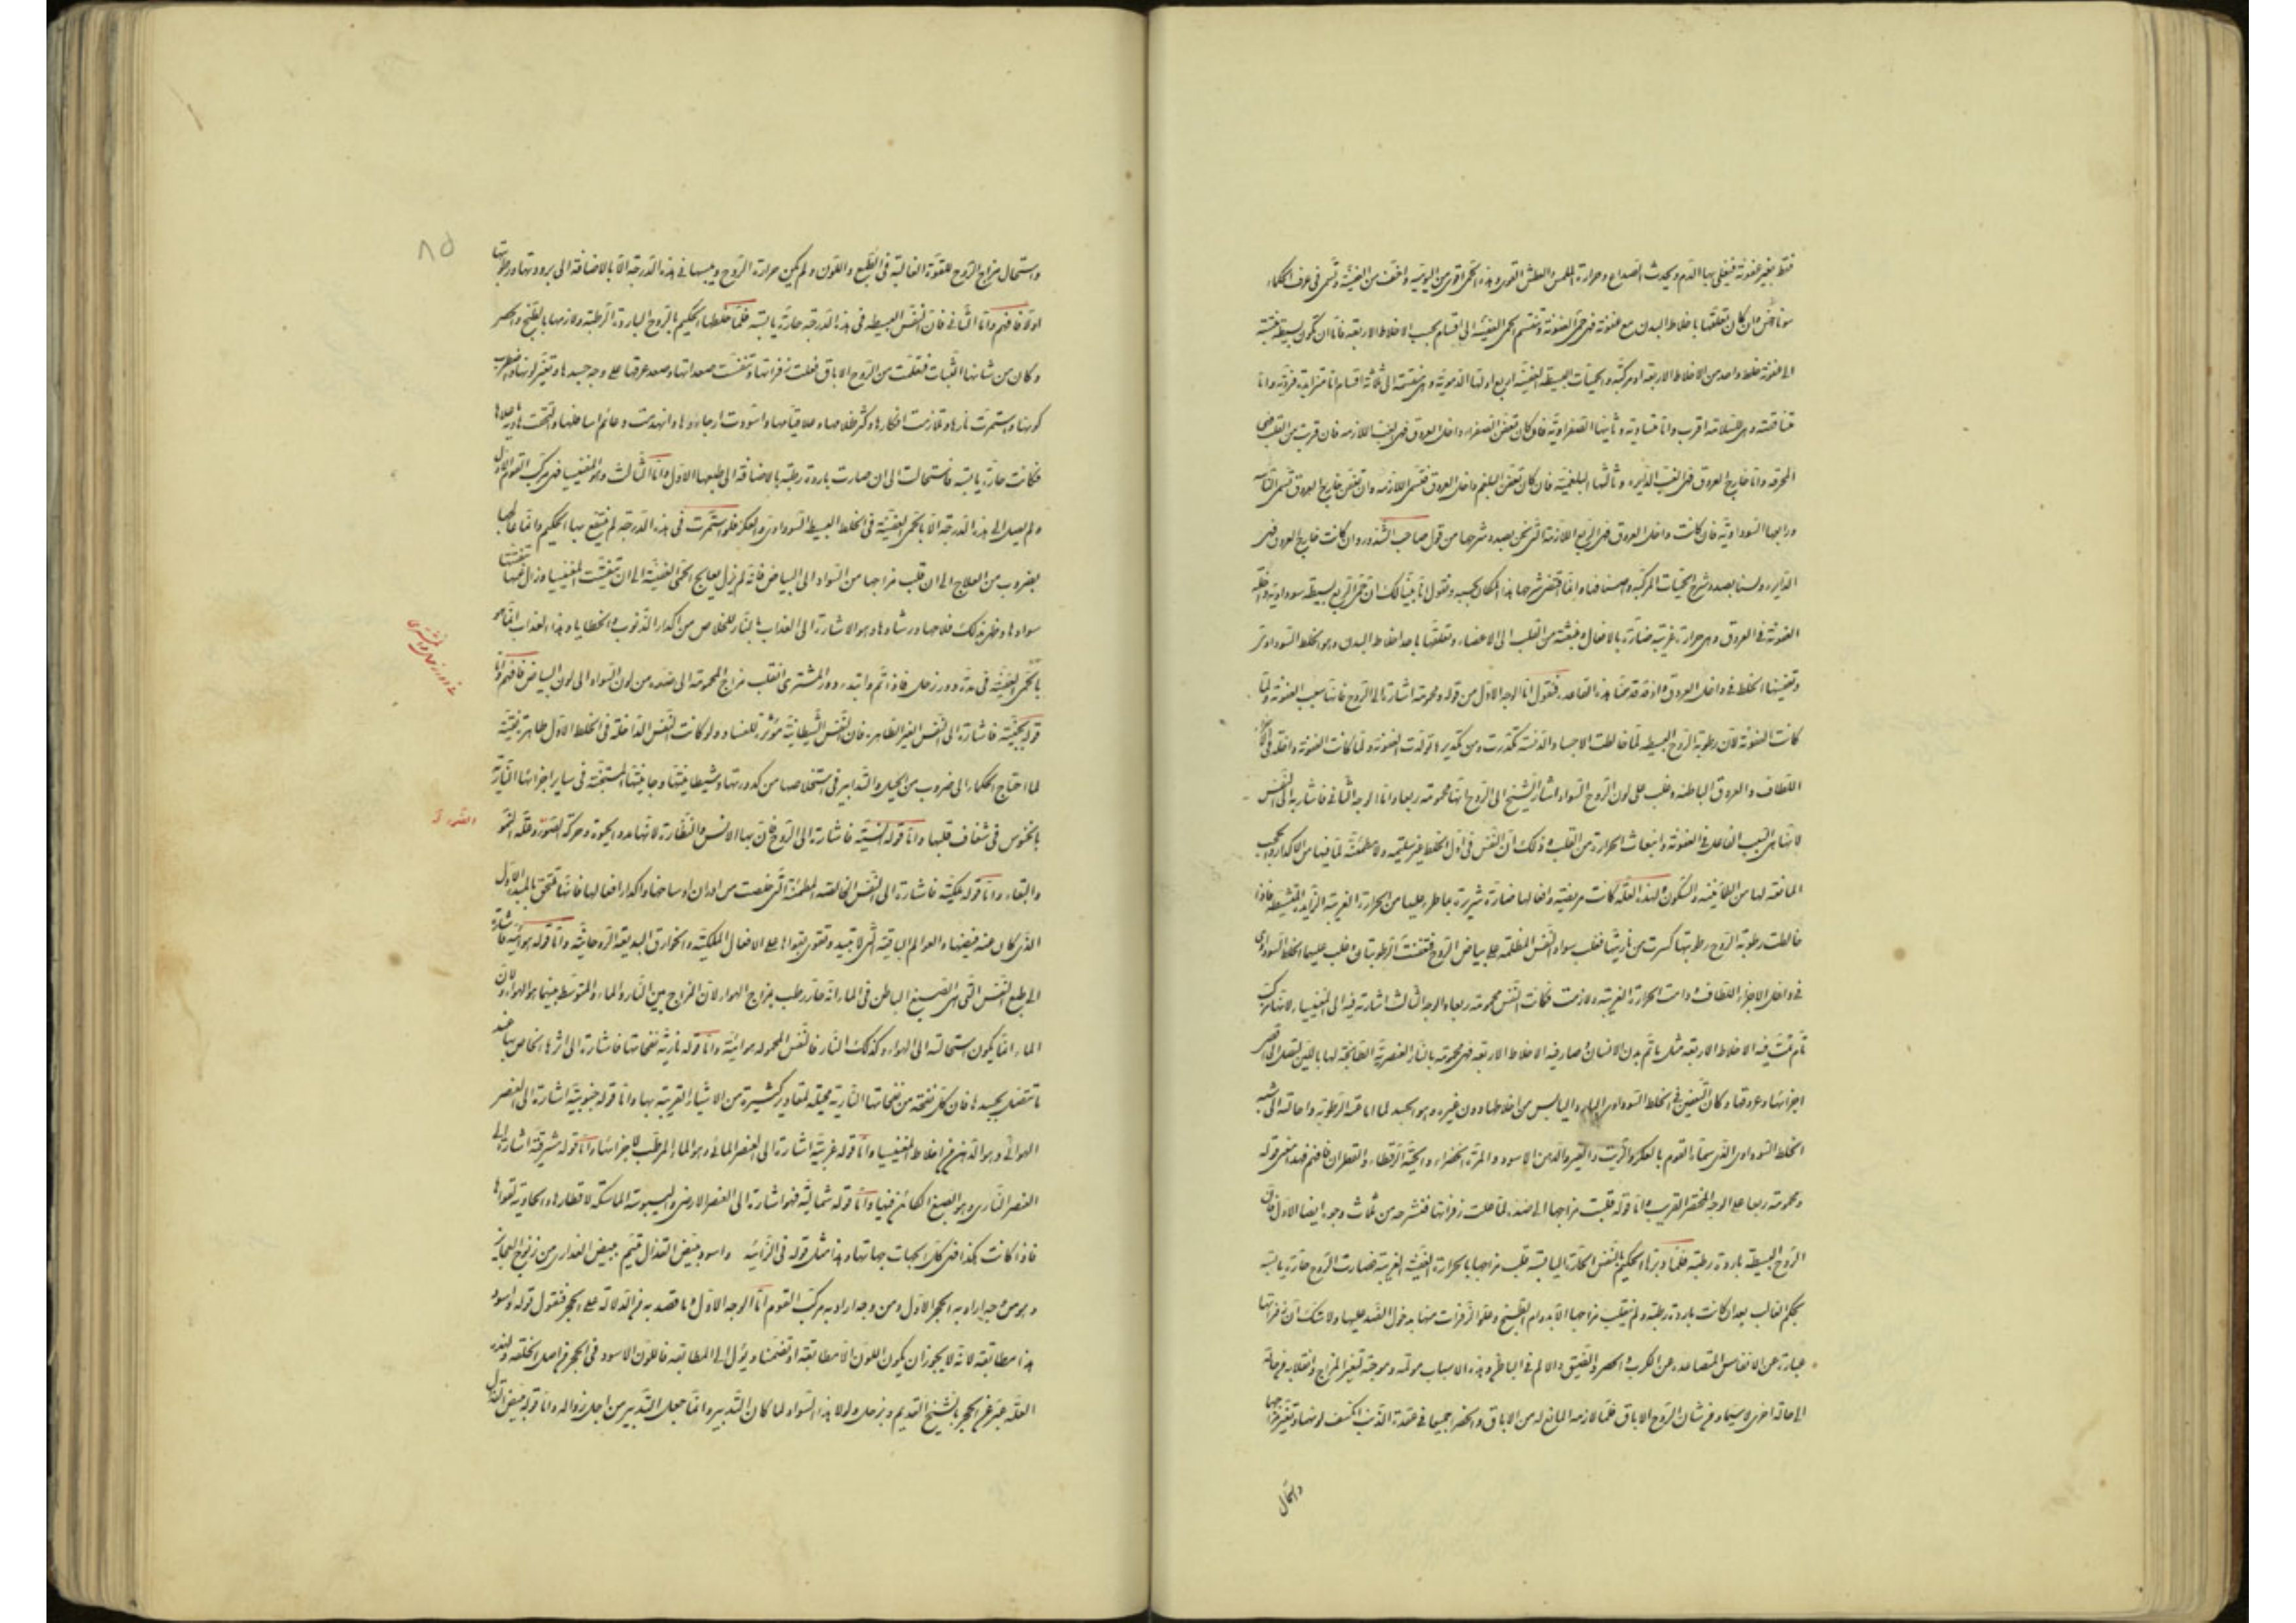 فقط بغير عفونة فيغلى بها الدم ويحدث الصداع وحرارة الملمس والعطش القوى وهذه الحمى اقوى من اليومية واخف من العفنية وتسمى فى عرف الحكماء
سوناخس وان كان تعلقها باخلاط البدن مع عفونة فهى حمى العفونة وتنقسم الحمى العفنية الى اقسام بحسب الاخلاط الاربعة فاما ان تكون بسيطة
الى عفونة خلط واحد من الاخلاط الاربعة او مركبة والحميات البسيطة العفنية اربع اولها الدموية وهى منقسمة الى ثلاثة اقسام اما متزايدة واما
متناقصة وهى للسلامة اقرب واما متساوية وثانيها الصفراوية فان كان تعفن الصفراء داخل العروق فهى الغب اللازمة فان قربت من القلب فهى
المحرقة واما خارج العروق فهى الغب الدايرة وثالثها البلغمية فان كان تعفن البلغم داخل العروق فتسمى اللازمة وان تعفن خارج العروق تسمى
ورابعها السوداوية فان كانت داخل العروق فهى الربع اللازمة التى نحن بصدد شرحها من قول صاحب الشذور وان كانت خارج العروق فهى
الدايرة ولسنا بصدد شرح الحميات المركبة واصنافها وانما اقتضى شرحها هذا المكان بحسبه ونقول انا بينا لك ان حمى الربع بسيطة سوداوية داخلة
العفونة فى العروق وهى حرارة غريبة ضارة بالافعال منبعثة من القلب الى الاعضاء وتعلقها باحد اخلاط البدن وهو الخلط السوداوى
وتعفينها الخلط فى داخل العروق واذ قد قدمنا هذه القاعدة فنقول اما الوجه الاول من قوله ومحمومة اشارة الى الروح فانها سبب العفونة ولما
كانت العفونة لان رطوبة الروح البسيطة لما خالطت الاجساد الدنسة تكدرت ومن تكديرها تولدت العفونة ولما كانت العفونة داخلة فى
اللطاف والعروق الباطنة وغلب على لون الروح السواد اشار الشيخ الى الروح انها محمومة ربعا واما الوجه الثانى فاشار به الى النفس
لانها هى السبب الفاعل فى العفونة وانبعاث الحرارة من القلب وذلك ان النفس فى اول الخلط غير سليمة ولا مطمئنة لما فيها من الاكدار
المانعة لها من الطمانينة والسكون ولهذه العلة كانت مريضة وافعالها ضارة شريرة بما طرء عليها من الحرارة الغريبة الزايدة فاذا
خالطت رطوبة الروح رطوبتها كسرت من ناريتها فغلب سواد النفس المظلمة على بياض الروح فتعفنت الرطوبتان وغلب عليهما الخلط السوداوى
فى داخل الاجزاء اللطاف ودامت الحرارة الغريبة ولازمت فكانت النفس محمومة ربعا والوجه الثالث اشارته فيه الى المغنيسيا لانها مركب
تام تمت فيه الاخلاط الاربعة مثل ما تم بدن الانسان وصار فيه الاخلاط الاربعة فهى محمومة بالنار العنصرية الطابخة لها باللين لتصل الى اقصى
اجزائها وعروقها وكان التعفين فى الخلط السوداوى البارد اليابس من اخلاطها دون غيره وهو الجسد لما اماعته الرطوبة واحالته الى شبه
الخلط السوداوى الذى سماه القوم بالعكر والزيت والقير والدهن الاسود والمرة الخضراء والحية الرقطاء والقطران فافهم فهذا معنى قوله
ومحمومة ربعا على الوجه المختصر القريب واما قوله قلبت مزاجها الى ضده لما علت زفراتها فنشرحه من ثلاث وجوه ايضا الاول فان
الروح البسيطة باردة رطبة فلما دبرها الحكيم بالنفس الحارة اليابسة قلب مزاجها بالحرارة العفنية الغريبة فصارت الروح حارة يابسة
بحكم الغالب بعد ان كانت باردة رطبة ولم ينقلب مزاجها الا بدوام الطبيخ وعلو الزفرات منها بدخول الضد عليها ولا شك ان زفراتها
عبارة عن الانفاس المتصاعدة عن الكرب والحصر والضيق والالم فى الباطن وهذه الاسباب مولمة وموجبة لتغير المزاج وانقلابه من حالة
الى حالة اخرى لا سيما ومن شان الروح الاباق فلما لازمه المانع له من الاباق وانحصرا جميعا فى عقدة الذنب انكسف لونها وتغير مزاجها
واستحال
٨٥
واستحال مزاج الروح للقوة الغالبة فى الطبع واللون ولم يكن حرارة الروح ويبسها فى هذه الدرجة الا بالاضافة الى برودتها ورطوبتها
اولا فافهم واما الثانى فان النفس البسيطة فى هذه الدرجة حارة يابسة فلما خلطها الحكيم بالروح الباردة الرطبة ولازمها بالطبخ والحصر
وكان من شانها الثبات فتعلمت من الروح الاباق فعلت زفراتها وتنفست صعداتها وصعد عرقها على وجه جسدها وتغير لونها واضطرب
كونها واستمرت نارها وتلازمت افكارها وكثر ظلامها وعلا قتامها واسودت ارجاؤها وانهدمت دعائم اسافلها والتحقت
فكانت حارة يابسة فاستحالت الى ان صارت باردة رطبة بالاضافة الى طبعها الاول واما الثالث وهو المغنيسيا فهى مركب القوم الاول
ولم يصل الى هذه الدرجة الا بالحمى العفنية فى الخلط البسيط السوداوى والعكر فلو استمرت فى هذه الدرجة لم ينتفع بها الحكيم وانما عالجها
بضروب من العلاج الى ان قلب مزاجها من السواد الى البياض فانه لم يزل يعالج الحمى العفنية الى ان تنقت المغنيسيا وزال عنها
سوادها وظهر بذلك فلاحها ورشادها وهو الاشارة الى العذاب بالنار للخلاص من اكدار الذنوب والخطايا وهذا العذاب انما هو
بالحمى العفنية فى مدة دور زحل فاذا تم وابتدء دور المشترى انقلب مزاج المحمومة الى ضده من لون السواد الى لون البياض فافهم واما
قوله جنية فاشارة الى النفس الغير الطاهرة فان النفس الشيطانية مؤثرة للفساد ولو كانت النفس الداخلة فى الخلط الاول طاهرة نقية
لما احتاج الحكماء الى ضروب من الحيل والتدابير فى استخلاصها من كدورتها وشيطانيتها وجانيتها المستجنة فى ساير اجزائها
بالخنوس فى شغاف قلبها واما قوله انسية فاشارة الى الروح فان بها الانس والنظارة لانها مدد الحيوة وحركة الصورة وعلة النمو
والبقاء واما قوله ملكية فاشارة الى النفس الخالصة المطمئنة التى خلصت من ادران اوساخها واكدار افعالها فانها تلتحق بالمبدء الاول
الذى كان عنه فيضها والعوالم الباقية التى لا تبيد وتقوى بقواها على الافعال الملكية والخوارق البديعة الروحانية واما قوله هوائية فاشارة
الى طبع النفس التى هى الصبغ الباطن فى الماء انه حار رطب بمزاج الهواء لان المزاج بين النار والماء والمتوسط بينهما هو الهواء ولان
الماء انما يكون استحالته الى الهواء وكذلك النار فالنفس المحمولة هوائية واما قوله نارية نفحاتها فاشارة الى اثرها الخاص بها عند
ما تتصل بجسدها فان كل نفحة من نفحاتها النارية محيلة لمقادير كثيرة من الاشياء القريبة بها واما قوله جنوبية اشارة الى العنصر
الهوائى وهو الدهن من اخلاط المغنيسيا واما قوله غربية اشارة الى العنصر المائى وهو الماء المرطب لاجزائها واما قوله مشرقية اشارة الى
العنصر النارى وهو الصبغ الكائن فيها واما قوله شمالية فهو اشارة الى العنصر الارضى واليبوسة الماسكة لاقطارها والحاوية لقواها
فاذا كانت هكذا فهى كل الجهات جهاتها وهذا مثل قوله فى الزائية واسود مبيض القذال متيم ببيض العذارى من زنوج
وهو من وجه اراد به الحجر الاول ومن وجه اراد به مركب القوم اما الوجه الاول وما قصد به من الدلالة على الحجر فنقول قوله واسود
هذا مطابقة لانه لا يجوز ان يكون اللون الا مطابقة او تضمنا ويؤل الى المطابقة فاللون الاسود فى الحجر من اصل الخلقة ولهذه
العلة عبر عن الحجر بالشيخ القديم وبزحل ولولا هذا السواد لما كان التدبير وانما جعل التدبير من اجل زواله واما قوله مبيض القذال